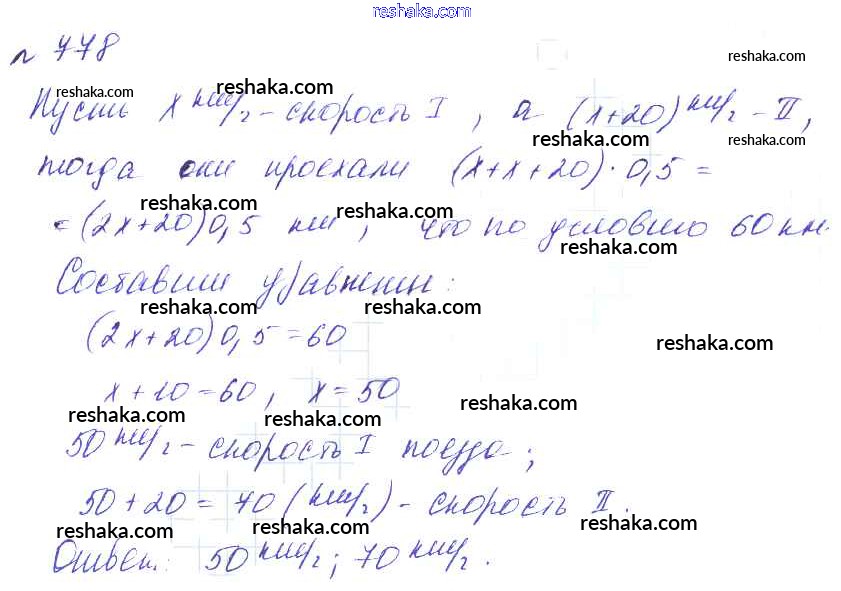 reshaka.com
№ 778
reshaka.com
reshaka.com reshaka.com
Пусть x км/г - скорость I, а (x+20) км/г - II,
reshaka.com reshaka.com
тогда они проехали (x+x+20)·0,5 =
reshaka.com reshaka.com
=(2x+20)0,5 км, что по условию 60 км.
reshaka.com
Составим уравнение:
reshaka.com reshaka.com
(2x+20)0,5=60
reshaka.com
x+10=60, x=50
reshaka.com reshaka.com reshaka.com
50 км/г - скорость I поезда;
50+20=70 (км/г) - скорость II.
reshaka.com reshaka.com reshaka.com
Ответ: 50 км/г; 70 км/г.